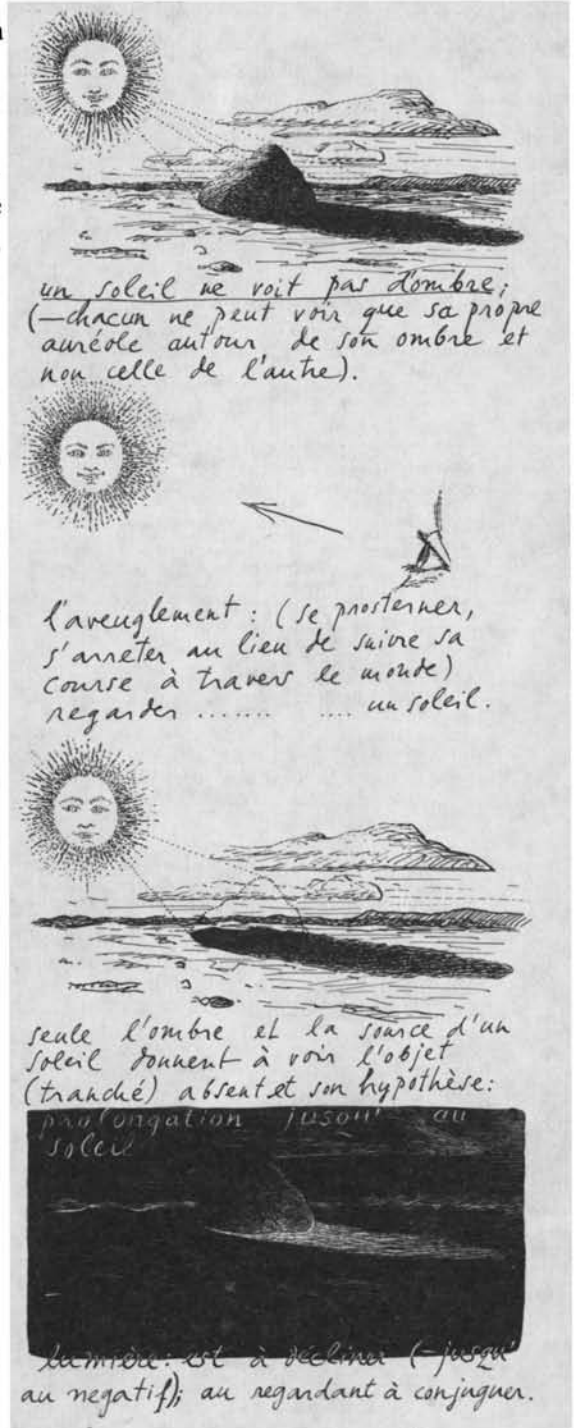 un soleil ne voit pas d'ombre;
(—chacun ne peut voir que sa propre
auréole autour de son ombre et
non celle de l'autre).
l'aveuglement : (se prosterner,
s'arrêter au lieu de suivre sa
course à travers le monde)
regarder ....... .... un soleil.
seule l'ombre et la source d'un
soleil donnent à voir l'objet
(tranché) absent et son hypothèse:
prolongation jusqu' au
soleil
lumière: est à décliner (—jusqu'
au negatif); au regardant à conjuguer.